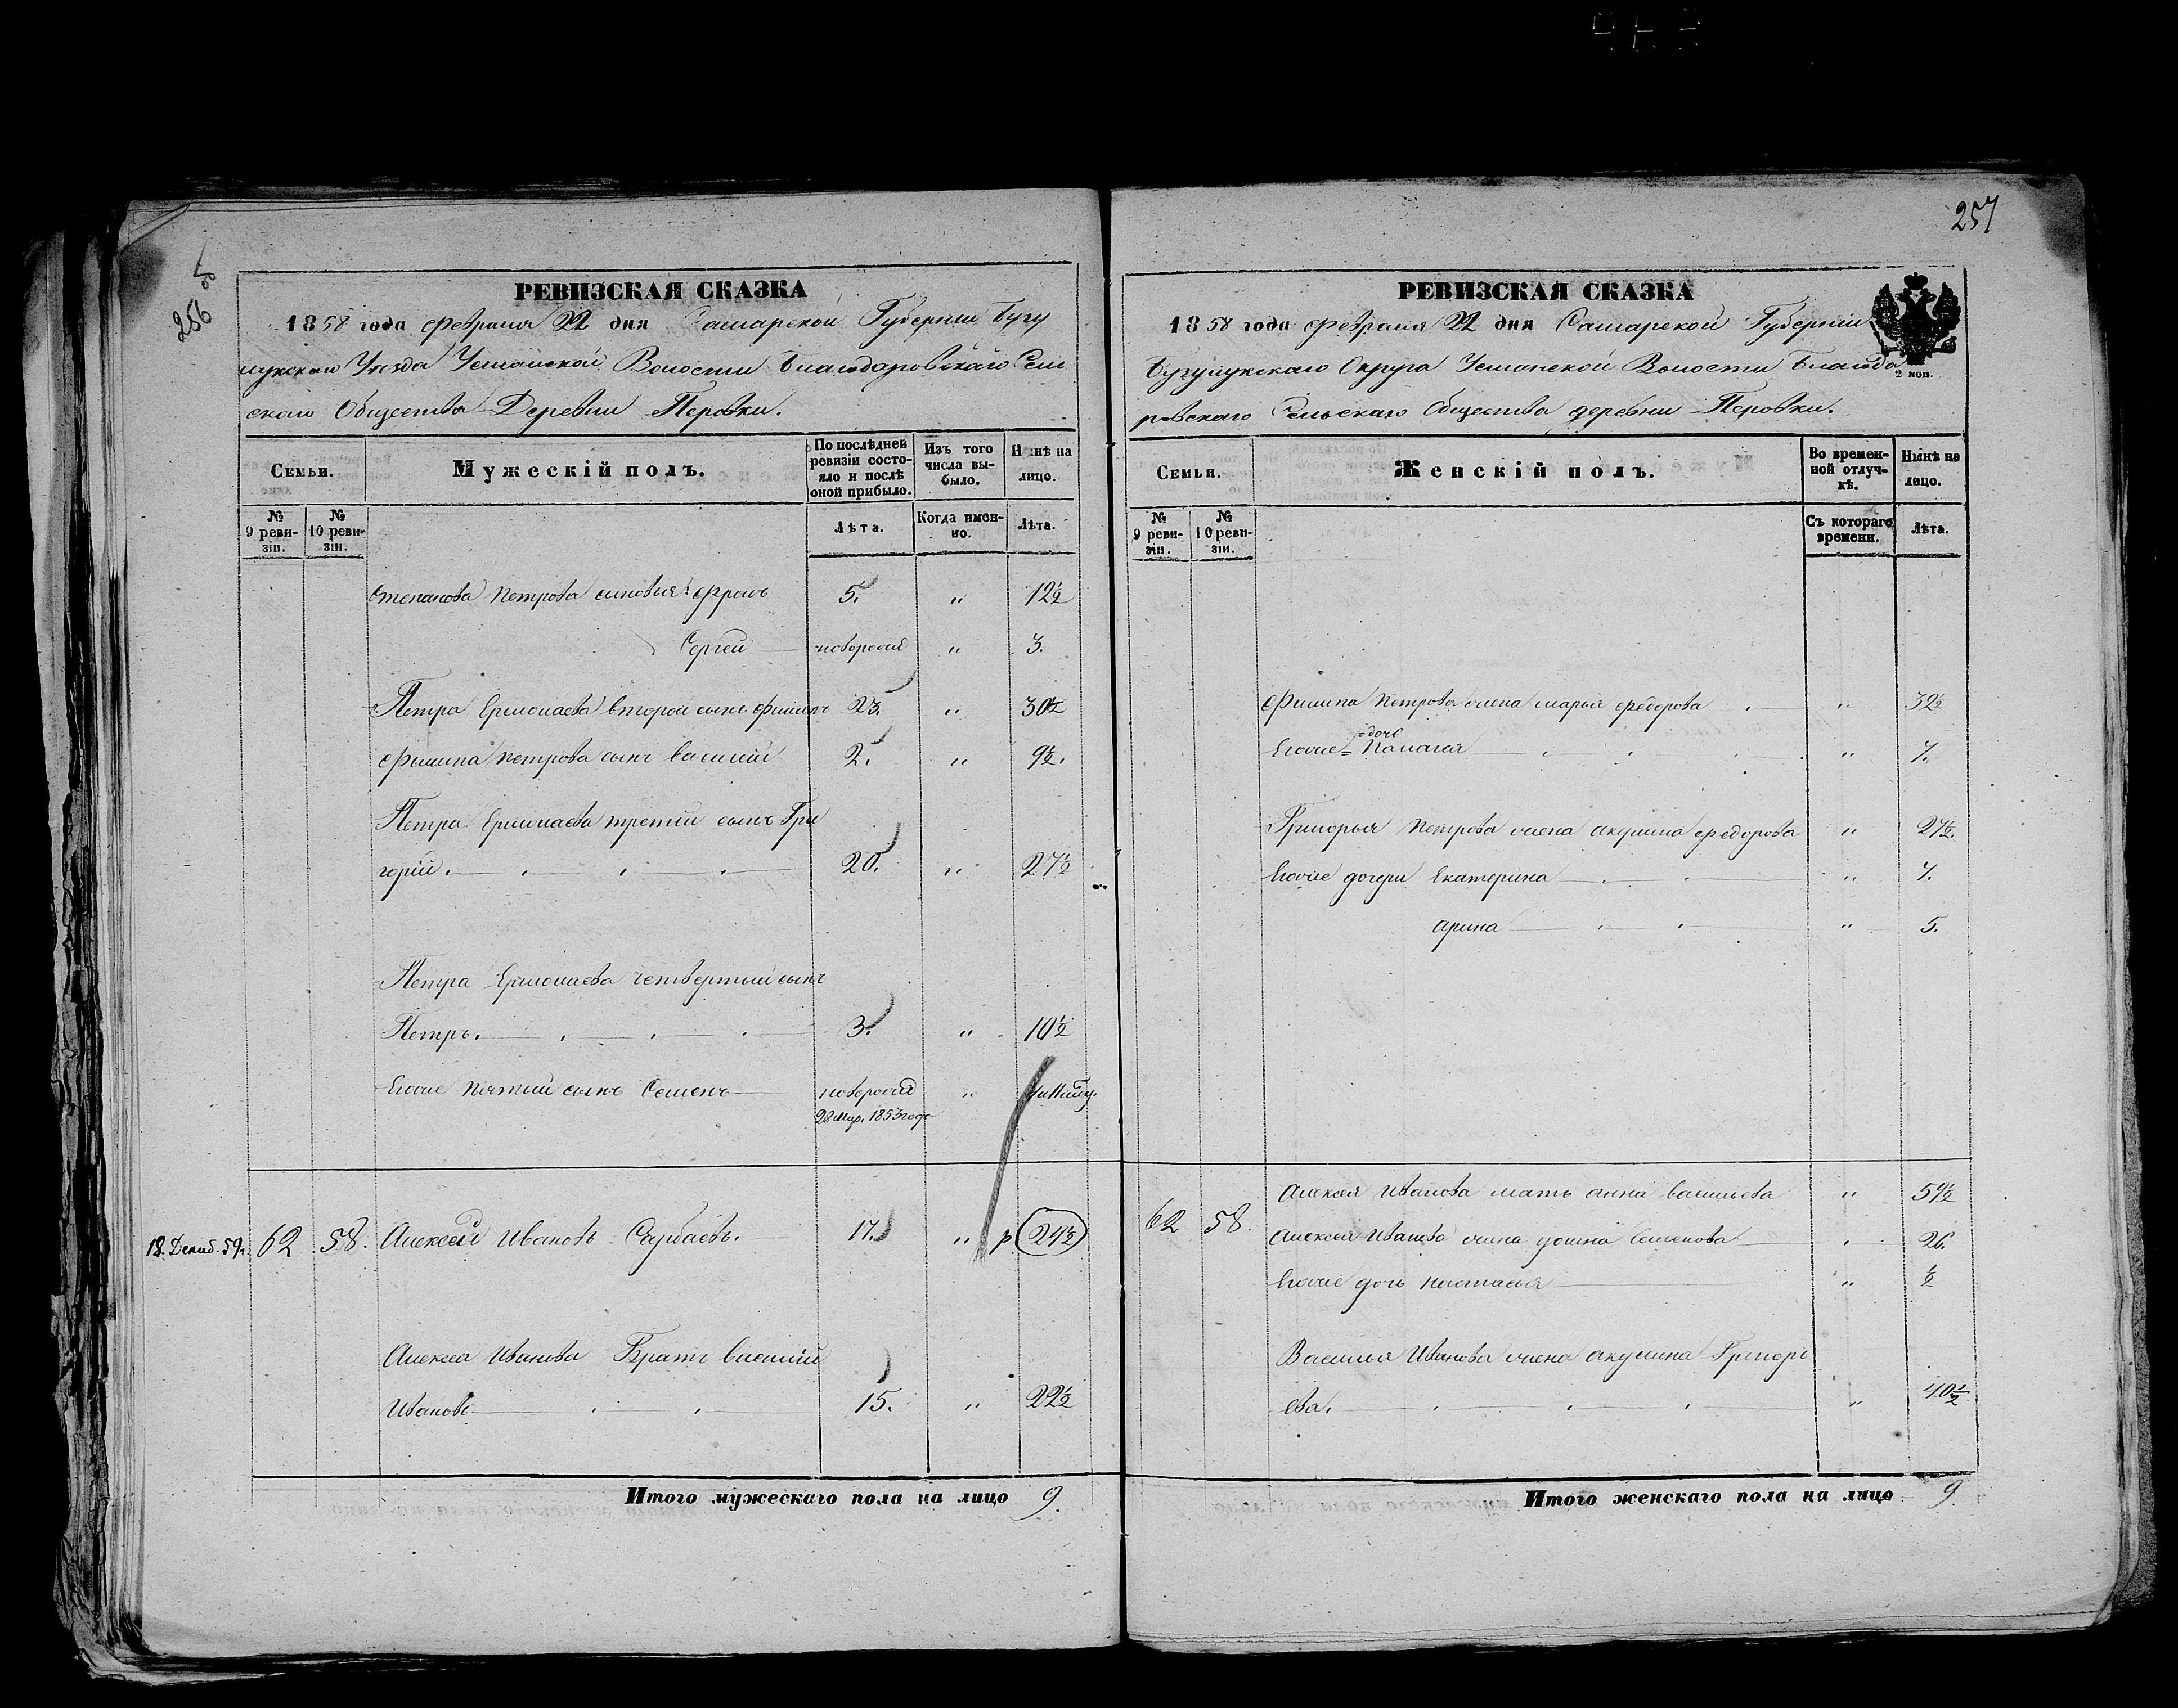 256
РЕВИЗСКАЯ СКАЗКА
1858 года Февраля 22 дня Самарской Губернии Бугу
Уезда Волости Благодаровскаго Сель
скаго Общества Деревни Перовки.
Семьи.
Мужескій полъ.
По послѣдней ревизіи состояло и послѣ оной прибыло.
Изъ того числа выбыло.
Нынѣ на лицо.
№ 9 ревизіи.
№ 10 ревизіи.
Лѣта.
Когда имонно.
Лѣта.
Степанова Петрова сыновья: Фролъ 5. " 12½
Сергей новорож " 3.
Петра Ермолаева второй сынъ Филипъ 23. " 30½
Филипа Петрова сынъ Василий 2. " 9½.
Петра Ермолаева третий сынъ Гри
горій. 20. " 27½
Петра Ермолаева четвертый сынъ
Петръ. 3. " 10½
Егоже пятый сынъ Семенъ новорож "
28 Мар. 1853 года
18. Декаб. 59. 62 58. Алексей Ивановъ 17. " р 24½
Алексея Иванова Братъ Василий
Ивановъ 15. " 22½
Итого мужескаго пола на лицо 9.
257
РЕВИЗСКАЯ СКАЗКА
1858 года Февраля 22 дня Самарской Губерніи
2 коп.
Округа Волости Благода
ровскаго Сельскаго Общества деревни Перовки.
Семьи.
Женскій полъ.
Во временной отлучкѣ.
Нынѣ на лицо.
№ 9 ревизіи.
№ 10 ревизіи.
Съ котораго времени.
Лѣта.
Филипа Петрова жена Марья Федорова " 32½
=дочь
Егоже= Палагея " 7.
Григорья Петрова жена Акулина Федорова " 27½.
Егоже дочери Екатерина " 7.
Арина " 5.
Алексея Иванова мать Анна Васильева " 54½
62 58. Алексея Иванова жена Семенова 26.
Егоже дочь Настасья " ½
Василья Иванова жена Акулина Григорь
ева. " 40½
Итого женскаго пола на лицо 9.